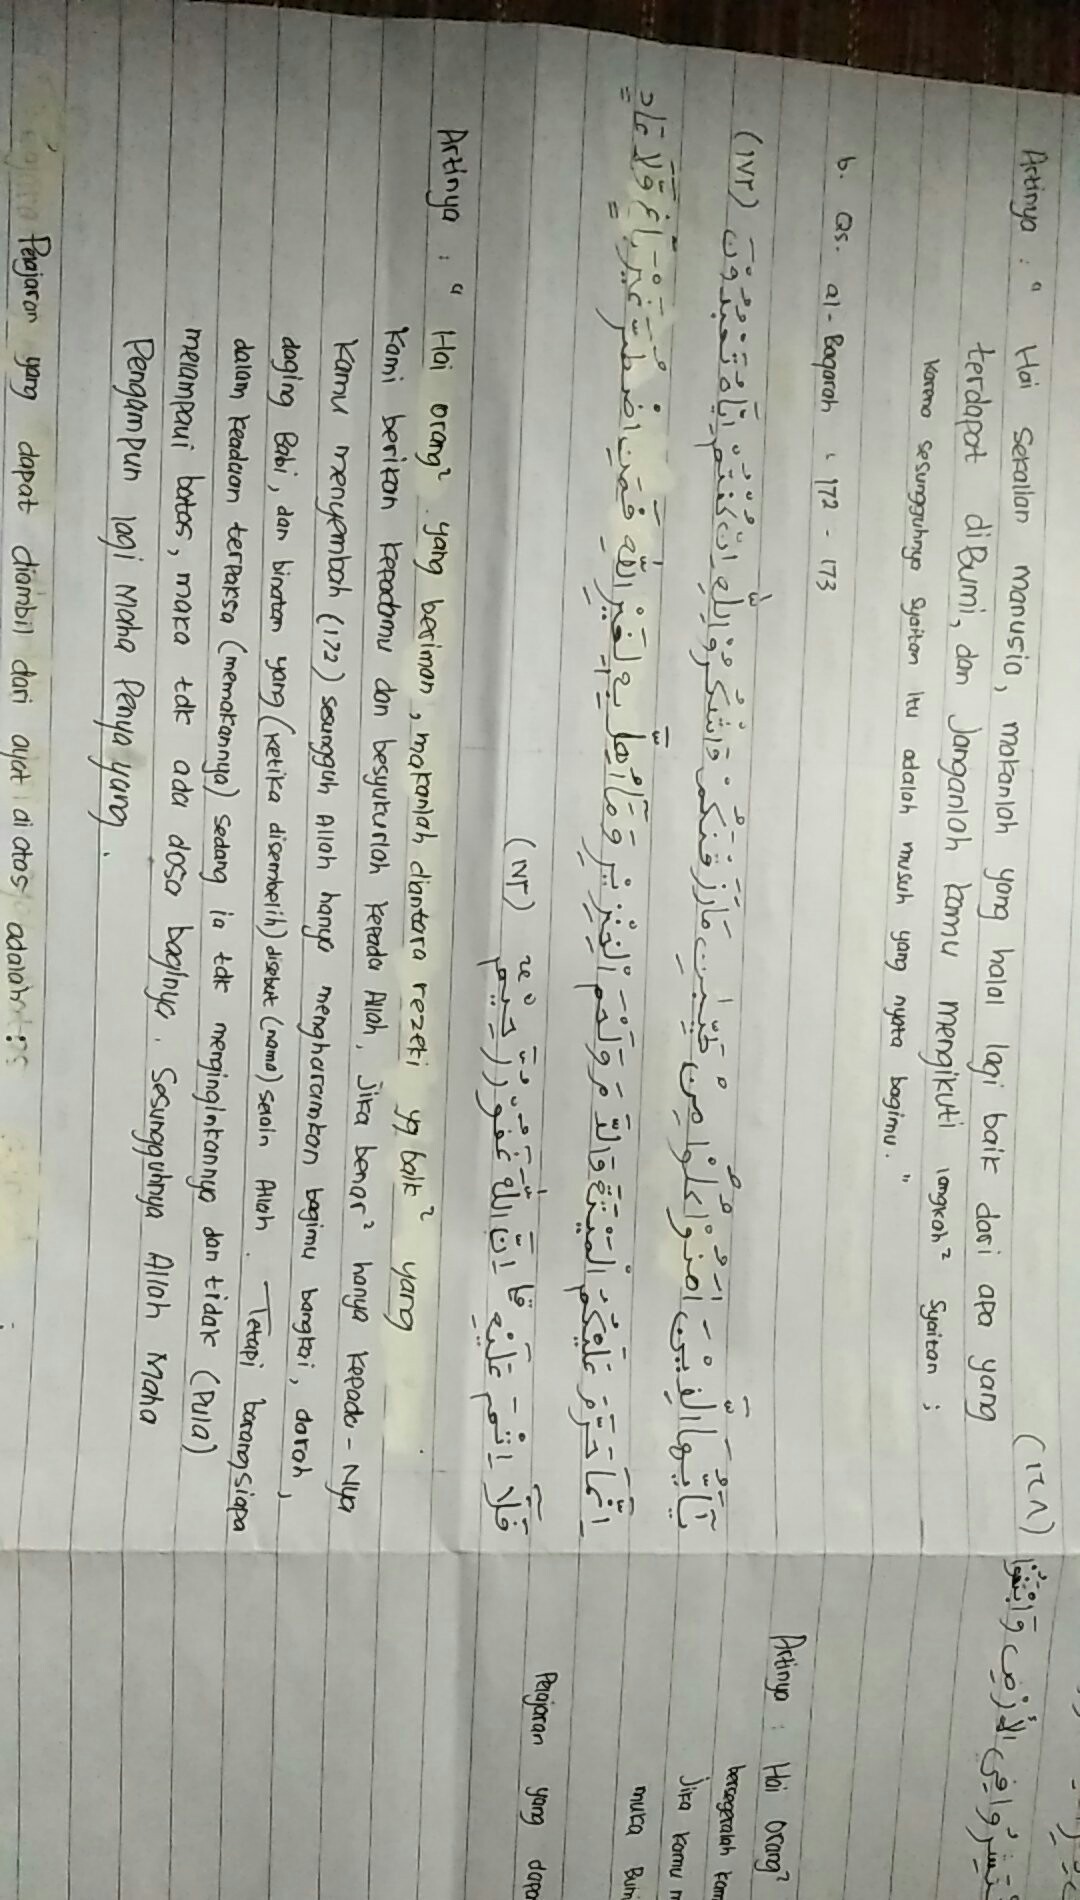 (١٦٨)
Artinya : " Hai sekalian manusia, makanlah yang halal lagi baik dari apa yang
terdapat diBumi, dan Janganlah kamu mengikuti langkah² syaitan ;
karena sesungguhnya syaitan itu adalah musuh yang nyata bagimu. "
b. Qs. al-Baqarah : 172 - 173
يَآ يُّهَا الَّذِيْنَ اٰمَنُوْا كُلُوْا مِنْ طَيِّبٰتِ مَا رَزَقْنٰكُمْ وَاشْكُرُوْا لِلّٰهِ اِنْ كُنْتُمْ اِيَّاهُ تَعْبُدُوْنَ (١٧٢)
اِنَّمَا حَرَّمَ عَلَيْكُمُ الْمَيْتَةَ وَالدَّمَ وَلَحْمَ الْخِنْزِيْرِ وَمَآ اُهِلَّ بِهٖ لِغَيْرِ اللّٰهِ فَمَنِ اضْطُرَّ غَيْرَ بَاغٍ وَّلَا عَادٍ
فَلَآ اِثْمَ عَلَيْهِ اِنَّ اللّٰهَ غَفُوْرٌ رَّحِيْمٌ (١٧٣)
Artinya : " Hai orang² yang beriman, makanlah diantara rezeki yg baik² yang
Kami berikan kepadamu dan besyukurlah kepada Allah, jika benar² hanya kepada-Nya
Kamu menyembah (172) sesungguh Allah hanya mengharamkan bagimu bangkai, darah,
daging Babi, dan binatan yang (ketika disembelih) disebut (nama) selain Allah. Tetapi barangsiapa
dalam keadaan terpaksa (memakannya) sedang ia tdk menginginkannya dan tidak (Pula)
melampaui batas, maka tdk ada dosa baginya. Sesungguhnya Allah Maha
Pengampun lagi Maha Penyayang.
Pelajaran yang dapat diambil dari ayat diatas adalah :
وَابْتَغُوْا
فِى الْاَرْضِ
Artinya : Hai orang²
bersegeralah
jika kamu
muka Bumi
Pelajaran yang